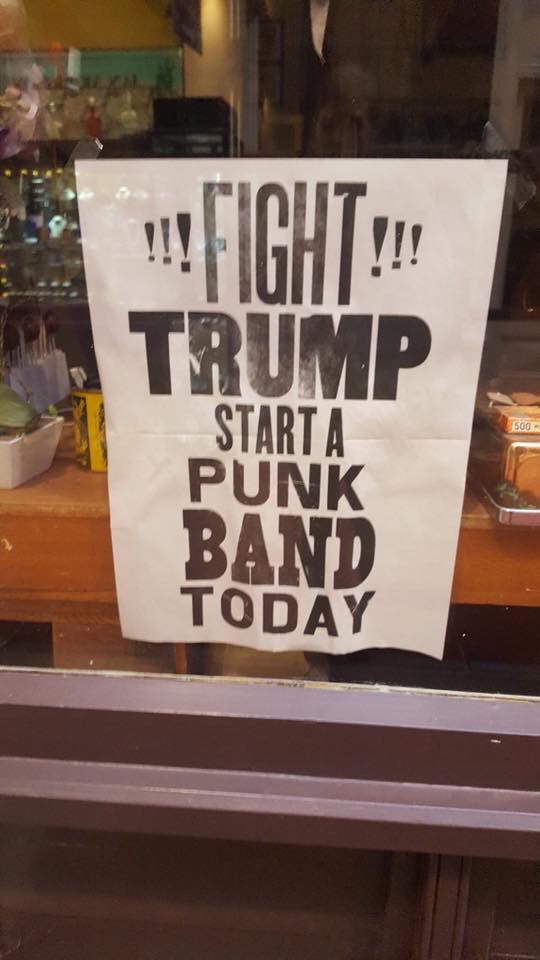 !!! FIGHT !!!
TRUMP
START A
PUNK
BAND
TODAY
500